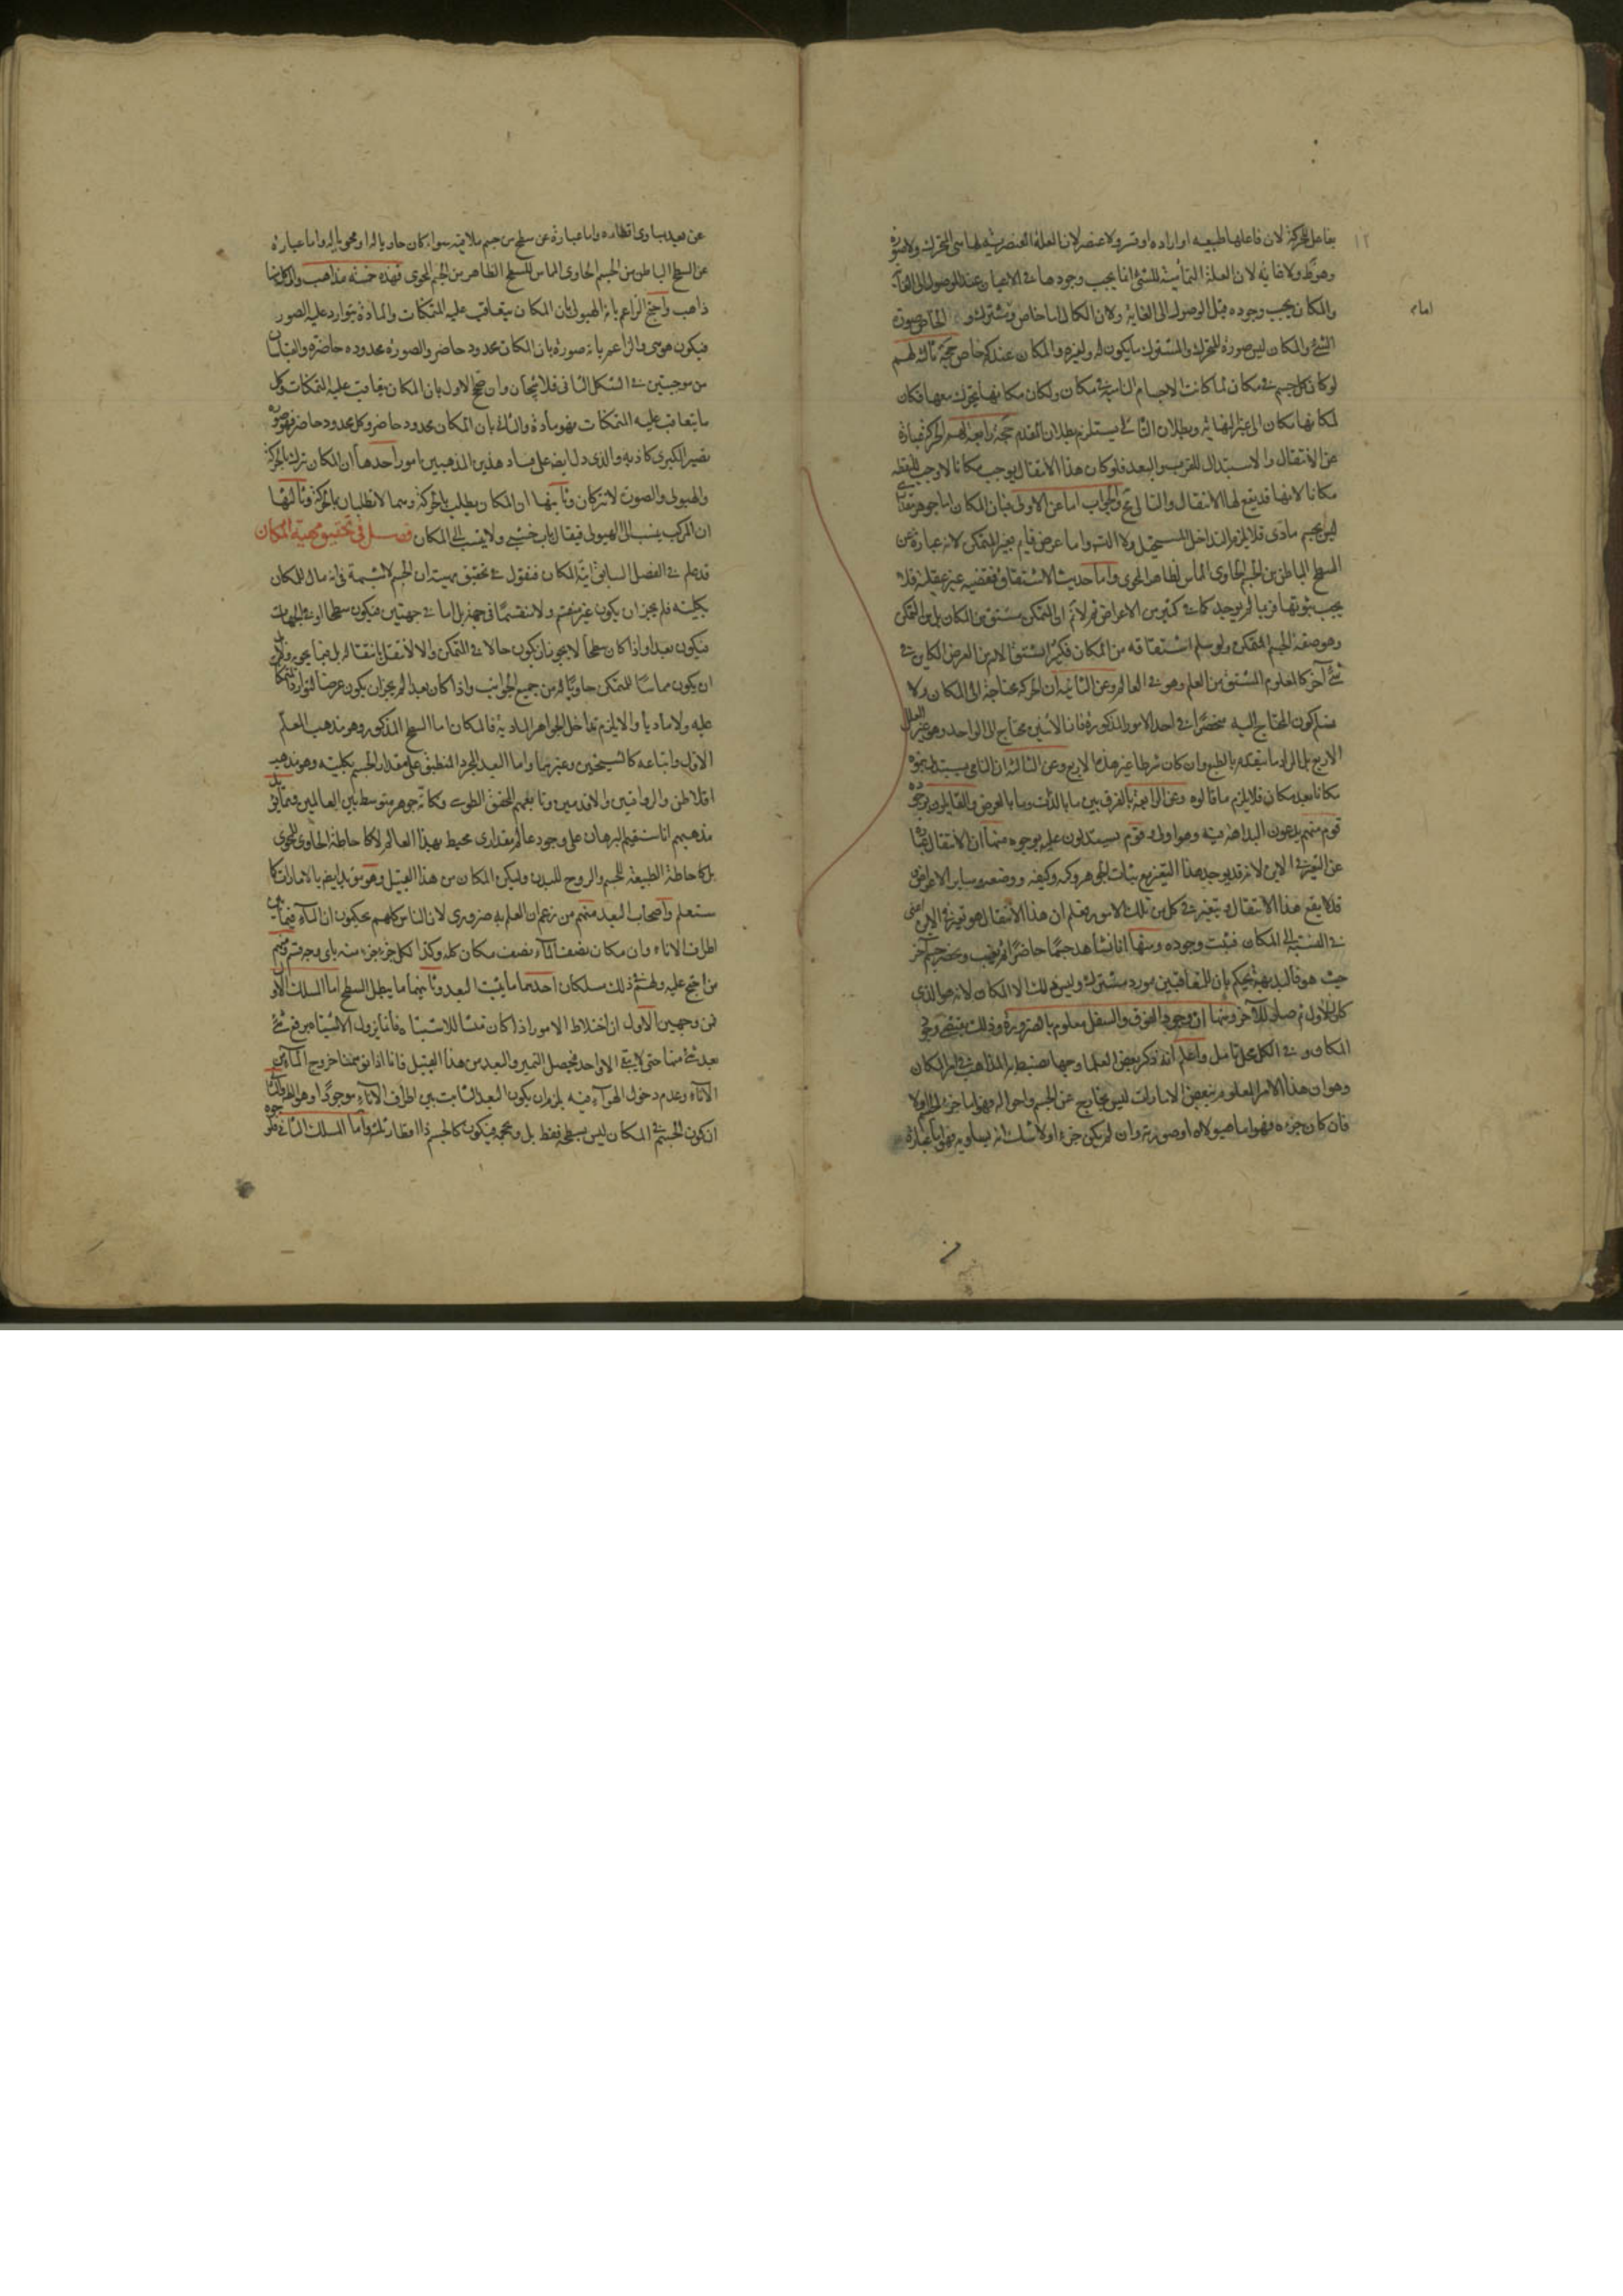 بفاعل للحركة لان فاعلها طبيعه او اراده او قسر ولا عنصر لان العلة العنصرية لها هى المتحرك ولا صورة
وهو ظ ولا غاية لان العلة التمامية للشئ انما يجب وجودها فى الاعيان عند الوصول الى الغاية
والمكان يجب وجوده قبل الوصول الى الغاية ولان الكمال اما خاص او مشترك و الخاص صورة
الشئ والمكان ليس صورة للمتحرك والمشترك ما يكون له ولغيره والمكان عندكم خاص حجة ثالثة لهم
لو كان كل جسم فى مكان لما كانت الاجسام النامية فى مكان ولكان مكانها يتحرك معها فكان
لمكانها مكان الى غير النهاية وبطلان التالى يستلزم بطلان المقدم حجة رابعة لهم الحركة عبارة
عن الانتقال والاستبدال للقرب والبعد فلو كان هذا الانتقال يوجب مكانا لاوجب للنقطه
مكانا لانها قد يقع لها الانتقال والتالى مح والجواب اما عن الاولى فبان المكان اما جوهر
ليس بجسم مادى فلا يلزم التداخل المستحيل ولا التسلسل واما عرض قايم بغير المتمكن لانه عبارة عن
السطح الباطن من الجسم الحاوى المماس لظاهر المحوى واما حديث الاشتقاق فقضيه غير عقلية فلا
يجب ثبوتها فربما لم يوجد كما فى كثير من الاعراض ثم لا نم ان المتمكن مشتق من المكان بل من التمكن
وهو صفة الجسم المتمكن ولو سلم اشتقاقه من المكان فكثيرا يشتق الاسم من العرض الكاين فى
شئ آخر كالمعلوم المشتق من العلم وهو فى العالم وعن الثانية ان الحركة محتاجة الى المكان ولا
نسلم كون المحتاج اليه منحصرا فى احد الامور المذكورة فان الاثنين محتاج الى الواحد وهو غير العلل
الاربع بل المراد ما يتقدم بالطبع وان كان شرطا غير هذه الاربع وعن الثالثة ان النامى يستبدل بنموه
مكانا بعد مكان فلا يلزم ما قالوه وعن الرابعة بالفرق بين ما بالذات وما بالعرض والقايلون بوجوده
قوم منهم يدعون البداهة فيه وهو اولى وقوم يستدلون عليه بوجوه منها ان الانتقال عبارة
عن التغير فى الاين لانه قد يوجد هذا التغير مع ثبات الجوهر وكمه وكيفه ووضعه وساير الاعراض
فلا يقع هذا الانتقال وبتغير فى كل من تلك الامور فعلم ان هذا الانتقال هو تغير فى الاين اعنى
فى النسبة الى المكان فثبت وجوده ومنها انا نشاهد جسما حاضرا ثم يغيب ويحضر جسم آخر
حيث هو فالبديهة يحكم بان للمتعاقبين مورد مشترك وليس ذلك الا المكان لانه هو الذى
كان للاول ثم صار للآخر ومنها ان وجود الفوق والسفل معلوم بالضرورة وذلك يقتضى وجود
المكان و فى الكل محل تامل واعلم انه ذكر بعض العلما وجها لضبط المذاهب فى امر المكان
وهو ان هذا الامر المعلوم ببعض الامارات ليس بخارج عن الجسم واحواله فهو اما جزء الجسم اولا
فان كان جزءه فهو اما هيولاه او صورته وان لم يكن جزءا ولا شك انه يساويه فهو اما عبارة
امام
١٢
عن بعد يساوى اقطاره واما عبارة عن سطح من جسم يلاقيه سواء كان حاويا له او محويا له واما عبارة
عن السطح الباطن من الجسم الحاوى المماس للسطح الظاهر من الجسم المحوى فهذه خمسة مذاهب والى كل منها
ذاهب واحتج الزاعم بانه الهيولى بان المكان يتعاقب عليه المتمكنات والمادة يتوارد عليه الصور
فيكون هو هى والزاعم بانه صورة بان المكان محدود حاضر والصورة محدوده حاضرة والقياسان
من موجبتين فى الشكل الثانى فلا ينتجان وان صحح الاول بان المكان يتعاقب عليه المتمكنات وكل
ما يتعاقب عليه المتمكنات فهو مادة والثانى بان المكان محدود حاضر وكل محدود حاضر فهو صورة
يصير الكبرى كاذبه والذى دل ايضا على فساد هذين المذهبين امور احدها ان المكان يترك بالحركة
والهيولى والصورة لا يتركان وثانيها ان المكان يطلب بالحركة وهما لا تطلبان بالحركة وثالثها
ان المركب ينسب الى الهيولى فيقال باب خشبى ولا ينسب الى المكان فصل فى تحقيق مهية المكان
قد علم فى الفصل السابق انية المكان فنقول فى تحقيق مهيته ان الجسم لا شبهة فى انه مال للمكان
بكليته فلم يجز ان يكون غير منقسم ولا منقسما فى جهة بل اما فى جهتين فيكون سطحا او فى الجهات
فيكون بعدا واذا كان سطحا لا يجوز ان يكون حالا فى المتمكن والا لانتقل بانتقاله بل فيما يحويه ولا بد
ان يكون مماسا للمتمكن حاويا له من جميع الجوانب واذا كان بعدا لم يجز ان يكون عرضا لتوارد المتمكنات
عليه ولا ماديا والا يلزم تداخل الجواهر المادية فالمكان اما السطح المذكور وهو مذهب المعلم
الاول واتباعه كالشيخين وغيرهما واما البعد المجرد المنطبق على مقدار الجسم بكليته وهو مذهب
افلاطن والرواقيين والاقدمين وتابعهم المحقق الطوسى وكانه جوهر متوسط بين العالمين ومما يؤيد
مذهبهم انا سنقيم البرهان على وجود عالم مقدارى محيط بهذا العالم لا كاحاطة الحاوى للمحوى
بل كاحاطة الطبيعة للجسم والروح للبدن وليكن المكان من هذا القبيل وهو مؤيد ايضا بالامارات كما
ستعلم واصحاب البعد منهم من زعم ان العلم به ضرورى لان الناس كلهم يحكمون ان الماء فيما بين
اطراف الاناء وان مكان نصف الماء نصف مكان كله وكذا لكل جزء جزء منه باى وجه قسم ومنهم
من احتج عليه ولهم فى ذلك مسلكان احدهما ما يثبت البعد وثانيهما ما يبطل السطح اما المسلك الاول
فمن وجهين الاول ان اختلاط الامور اذا كان منشأ للاشتباه فانما يزول الاشتباه برفع شئ
بعد شئ منها حتى لا يبقى الا واحد فيحصل التميز والبعد من هذا القبيل فانا اذا توهمنا خروج الماء من
الاناء وعدم دخول الهواء فيه يلزم ان يكون البعد الثابت بين اطراف الاناء موجودا وهو المط والثانى
ان كون الجسم فى المكان ليس بسطحه فقط بل وبحجمه فيكون كالجسم ذا اقطار ثلثه واما المسلك الثانى فله وجوه